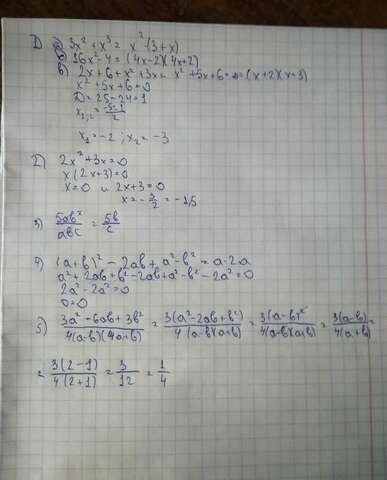 1) а) 3x² + x³ = x² (3+x)
б) 16x² - 4 = (4x-2)(4x+2)
в) 2x + 6 + x² + 3x = x² + 5x + 6 = (x+2)(x+3)
x² + 5x + 6 = 0
D = 25 - 24 = 1
x₁,₂ = (-5±1)/2
x₁ = -2 ; x₂ = -3
2) 2x² + 3x = 0
x (2x+3) = 0
x = 0 и 2x+3 = 0
x = -3/2 = -1,5
3) 5ab²/abc = 5b/c
4) (a+b)² - 2ab + a² - b² = a·2a
a² + 2ab + b² - 2ab + a² - b² - 2a² = 0
2a² - 2a² = 0
0 = 0
5) 3a² - 6ab + 3b²/4(a-b)(a+b) = 3(a² - 2ab + b²)/4(a-b)(a+b) = 3(a-b)²/4(a-b)(a+b) = 3(a-b)/4(a+b) =
= 3(2-1)/4(2+1) = 3/12 = 1/4